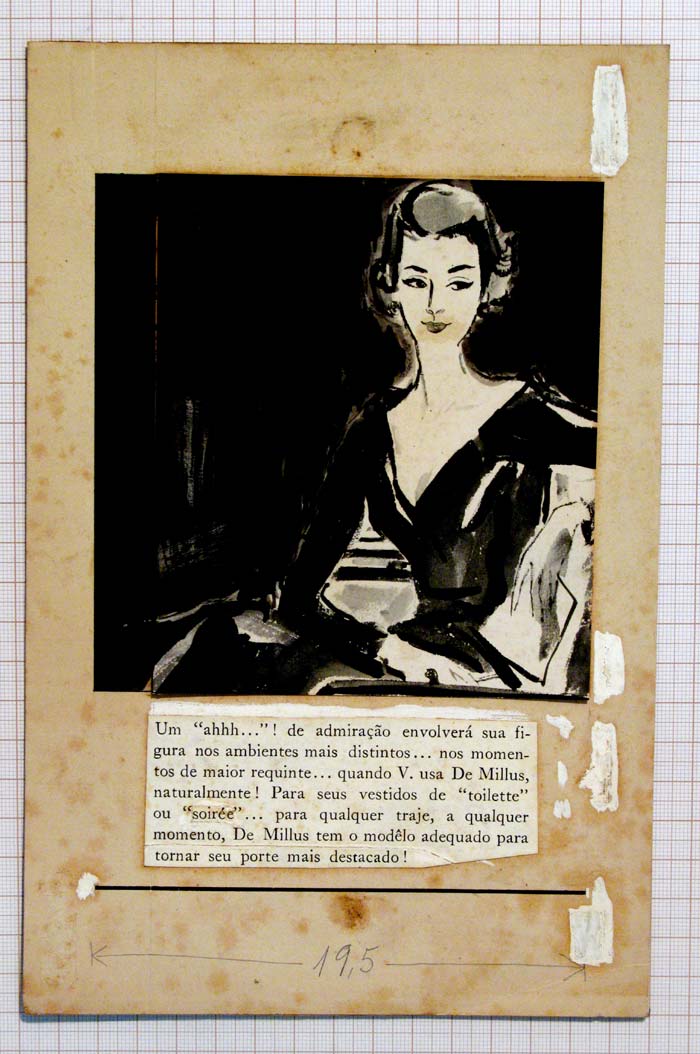 Um “ahhh...”! de admiração envolverá sua fi-
gura nos ambientes mais distintos... nos momen-
tos de maior requinte... quando V. usa De Millus,
naturalmente! Para seus vestidos de “toilette”
ou “soirée”... para qualquer traje, a qualquer
momento, De Millus tem o modêlo adequado para
tornar seu porte mais destacado!
19,5